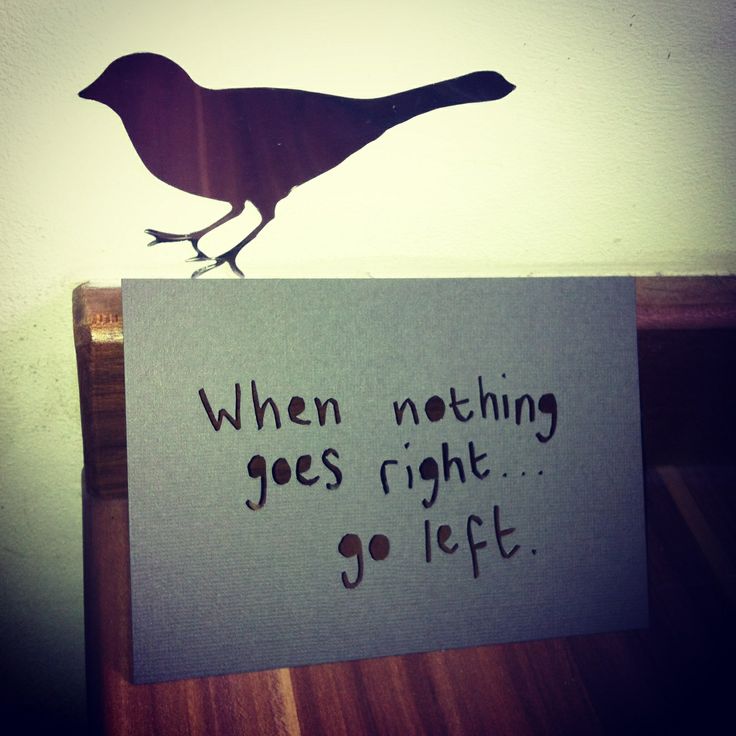 When nothing
goes right...
go left.